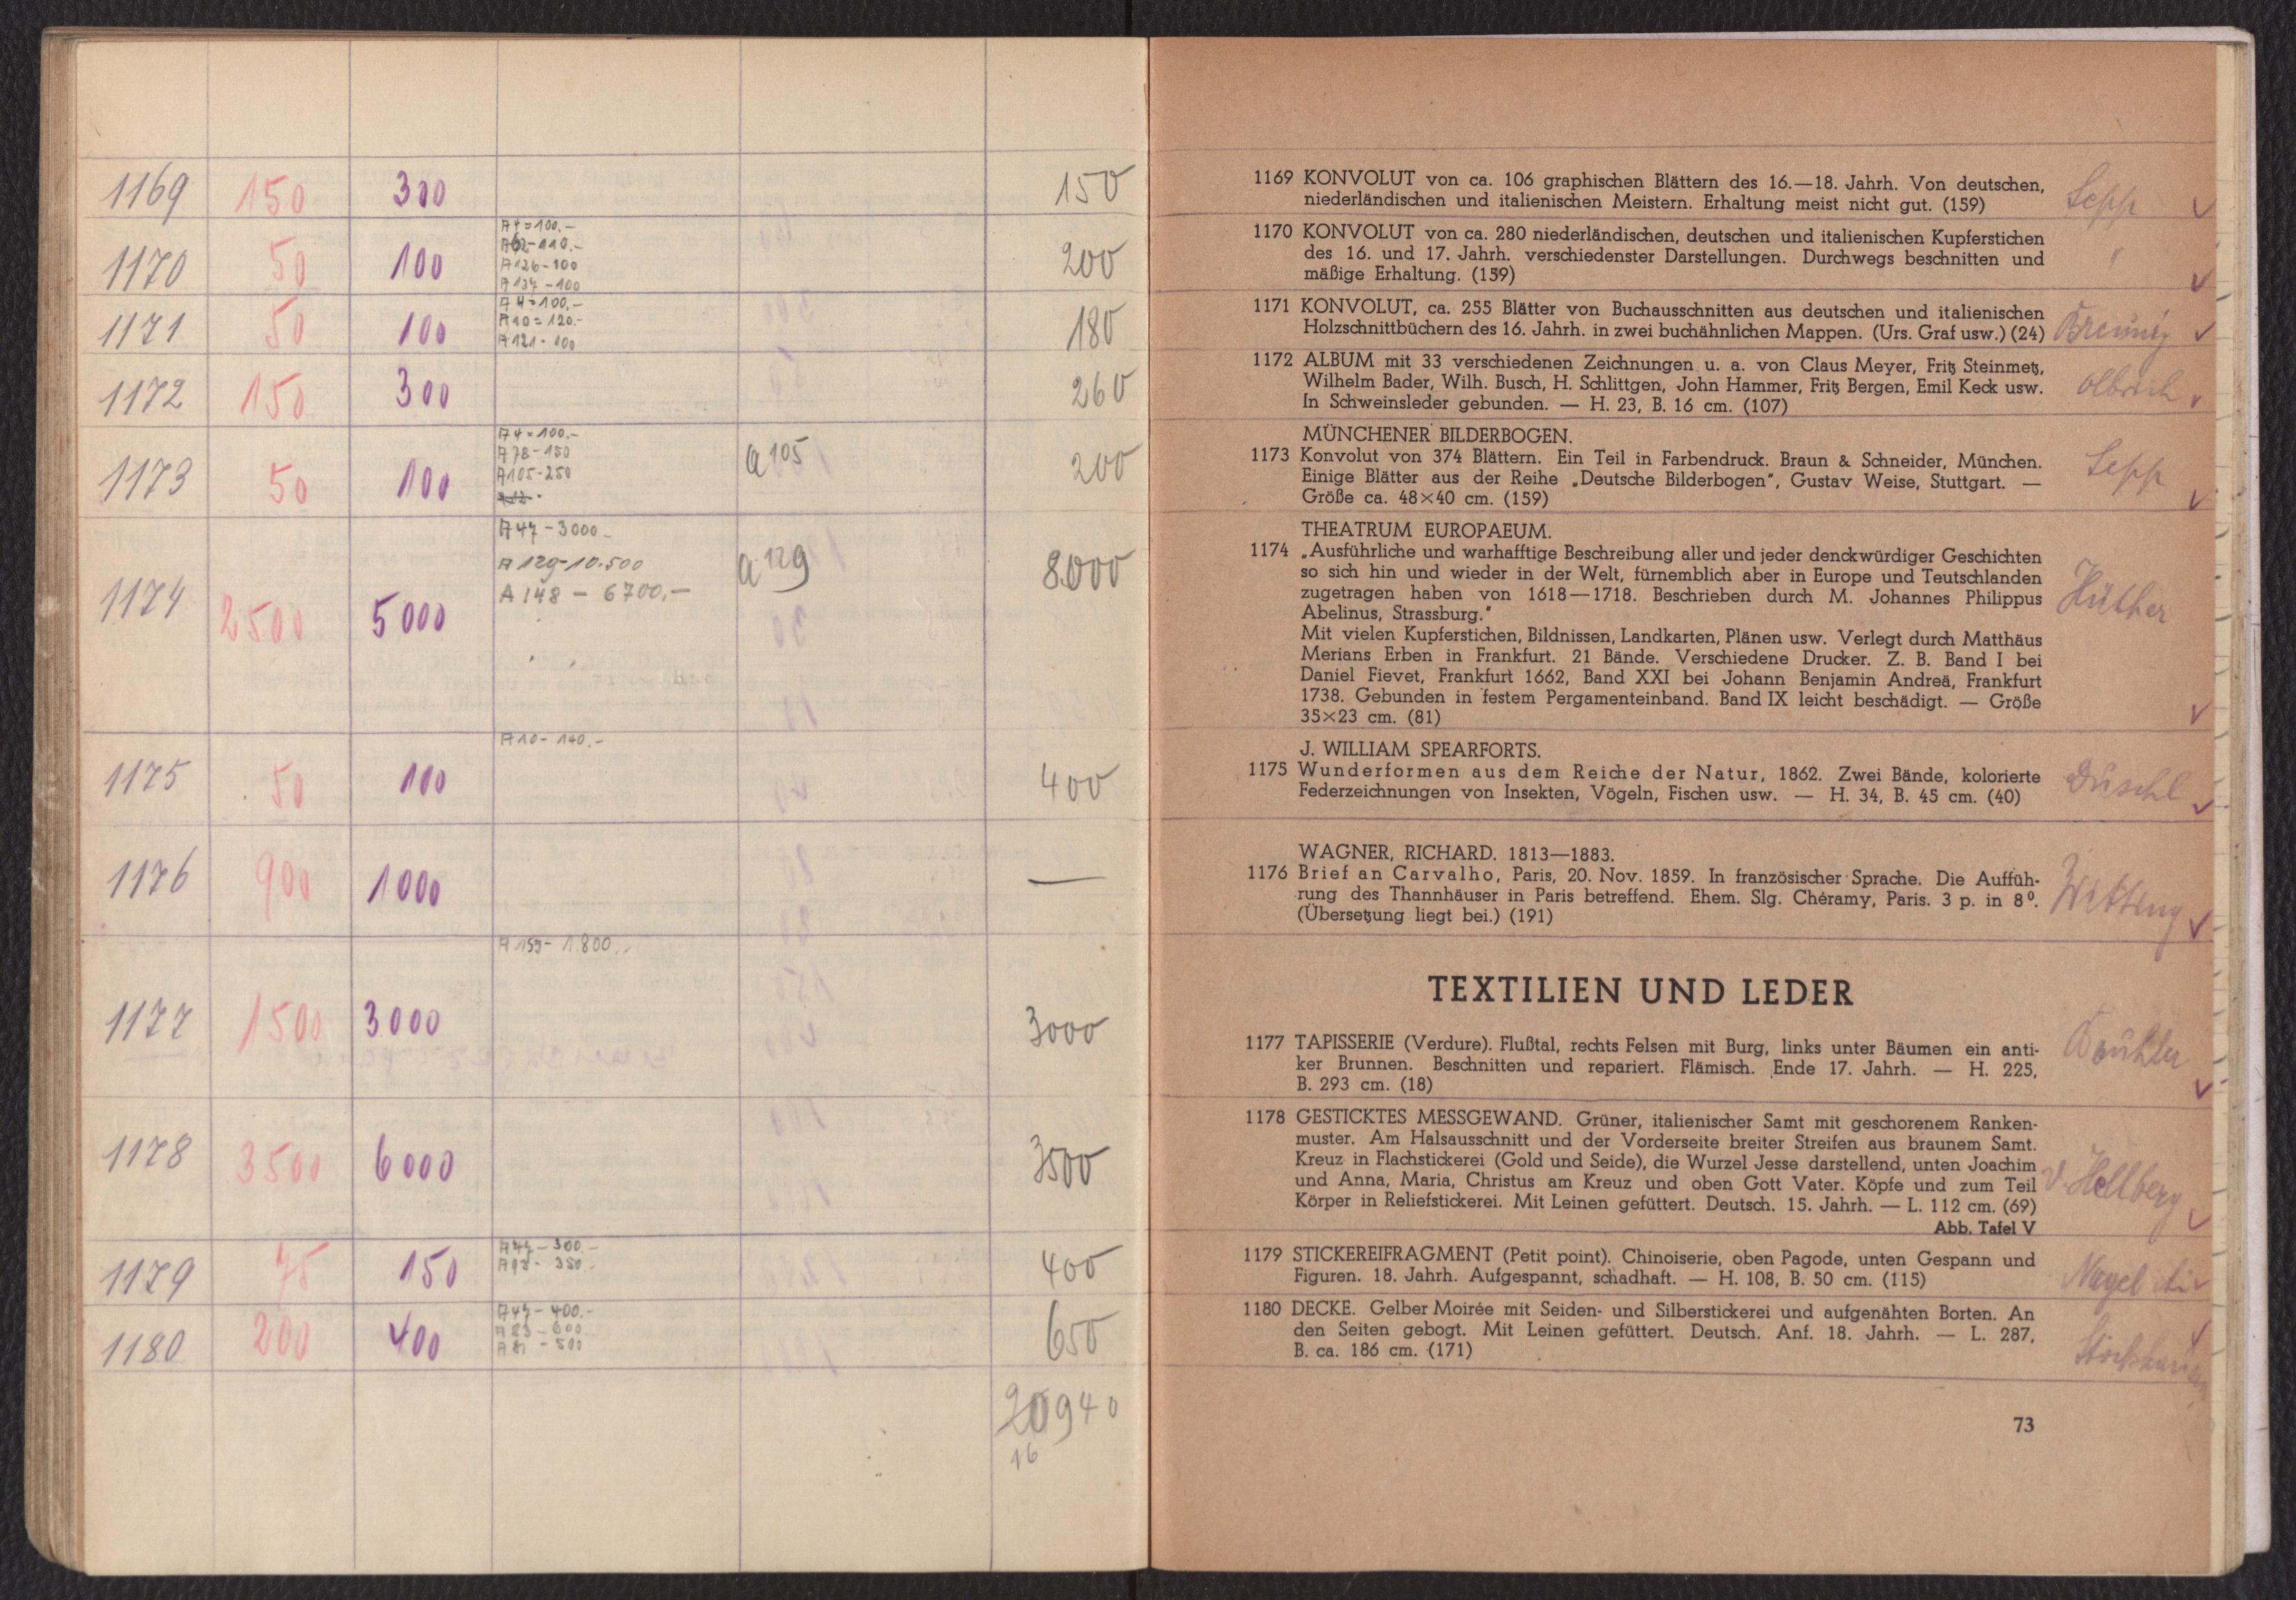 1169 150 300 150
A 4 = 100.-
A 62 - 110.-
1170 50 100 A 126 - 100 200
A 137 - 100
A 4 = 100.-
1171 50 100 A 10 = 120.- 180
A 121 - 100
1172 150 300 260
A 4 = 100.-
A 78 - 150
1173 50 100 A 105 - 250 a 105 200
A 47 - 3000.-
A 129 - 10.500 a 129 8000
1174 2500 5000 A 148 - 6700.-
A 10 - 140.-
1175 50 100 400
1176 900 1000 —
A 159 - 1.800.-
1177 1500 3000 3000
1178 3500 6000 3500
1179 75 150 400
A 47 - 400.-
1180 200 400 650
20940
16
1169 KONVOLUT von ca. 106 graphischen Blättern des 16.—18. Jahrh. Von deutschen, Sepp
niederländischen und italienischen Meistern. Erhaltung meist nicht gut. (159)
1170 KONVOLUT von ca. 280 niederländischen, deutschen und italienischen Kupferstichen
des 16. und 17. Jahrh. verschiedenster Darstellungen. Durchwegs beschnitten und "
mäßige Erhaltung. (159)
1171 KONVOLUT, ca. 255 Blätter von Buchausschnitten aus deutschen und italienischen
Holzschnittbüchern des 16. Jahrh. in zwei buchähnlichen Mappen. (Urs. Graf usw.) (24)
1172 ALBUM mit 33 verschiedenen Zeichnungen u. a. von Claus Meyer, Fritz Steinmetz,
Wilhelm Bader, Wilh. Busch, H. Schlittgen, John Hammer, Fritz Bergen, Emil Keck usw. Olbrich
In Schweinsleder gebunden. — H. 23, B. 16 cm. (107)
MÜNCHENER BILDERBOGEN.
1173 Konvolut von 374 Blättern. Ein Teil in Farbendruck. Braun & Schneider, München. Sepp
Einige Blätter aus der Reihe „Deutsche Bilderbogen", Gustav Weise, Stuttgart. —
Größe ca. 48×40 cm. (159)
THEATRUM EUROPAEUM.
1174 „Ausführliche und warhafftige Beschreibung aller und jeder denckwürdiger Geschichten
so sich hin und wieder in der Welt, fürnemblich aber in Europe und Teutschlanden
zugetragen haben von 1618—1718. Beschrieben durch M. Johannes Philippus Hüther
Abelinus, Strassburg."
Mit vielen Kupferstichen, Bildnissen, Landkarten, Plänen usw. Verlegt durch Matthäus
Merians Erben in Frankfurt. 21 Bände. Verschiedene Drucker. Z. B. Band I bei
Daniel Fievet, Frankfurt 1662, Band XXI bei Johann Benjamin Andreä, Frankfurt
1738. Gebunden in festem Pergamenteinband. Band IX leicht beschädigt. — Größe
35×23 cm. (81)
J. WILLIAM SPEARFORTS.
1175 Wunderformen aus dem Reiche der Natur, 1862. Zwei Bände, kolorierte
Federzeichnungen von Insekten, Vögeln, Fischen usw. — H. 34, B. 45 cm. (40)
WAGNER, RICHARD. 1813—1883.
1176 Brief an Carvalho, Paris, 20. Nov. 1859. In französischer Sprache. Die Auffüh-
rung des Thannhäuser in Paris betreffend. Ehem. Slg. Chéramy, Paris. 3 p. in 8⁰.
(Übersetzung liegt bei.) (191)
TEXTILIEN UND LEDER
1177 TAPISSERIE (Verdure). Flußtal, rechts Felsen mit Burg, links unter Bäumen ein anti-
ker Brunnen. Beschnitten und repariert. Flämisch. Ende 17. Jahrh. — H. 225,
B. 293 cm. (18)
1178 GESTICKTES MESSGEWAND. Grüner, italienischer Samt mit geschorenem Ranken-
muster. Am Halsausschnitt und der Vorderseite breiter Streifen aus braunem Samt.
Kreuz in Flachstickerei (Gold und Seide), die Wurzel Jesse darstellend, unten Joachim
und Anna, Maria, Christus am Kreuz und oben Gott Vater. Köpfe und zum Teil v. Hellberg
Körper in Reliefstickerei. Mit Leinen gefüttert. Deutsch. 15. Jahrh. — L. 112 cm. (69)
Abb. Tafel V
1179 STICKEREIFRAGMENT (Petit point). Chinoiserie, oben Pagode, unten Gespann und
Figuren. 18. Jahrh. Aufgespannt, schadhaft. — H. 108, B. 50 cm. (115) Nagel
1180 DECKE. Gelber Moirée mit Seiden- und Silberstickerei und aufgenähten Borten. An
den Seiten gebogt. Mit Leinen gefüttert. Deutsch. Anf. 18. Jahrh. — L. 287,
B. ca. 186 cm. (171)
73